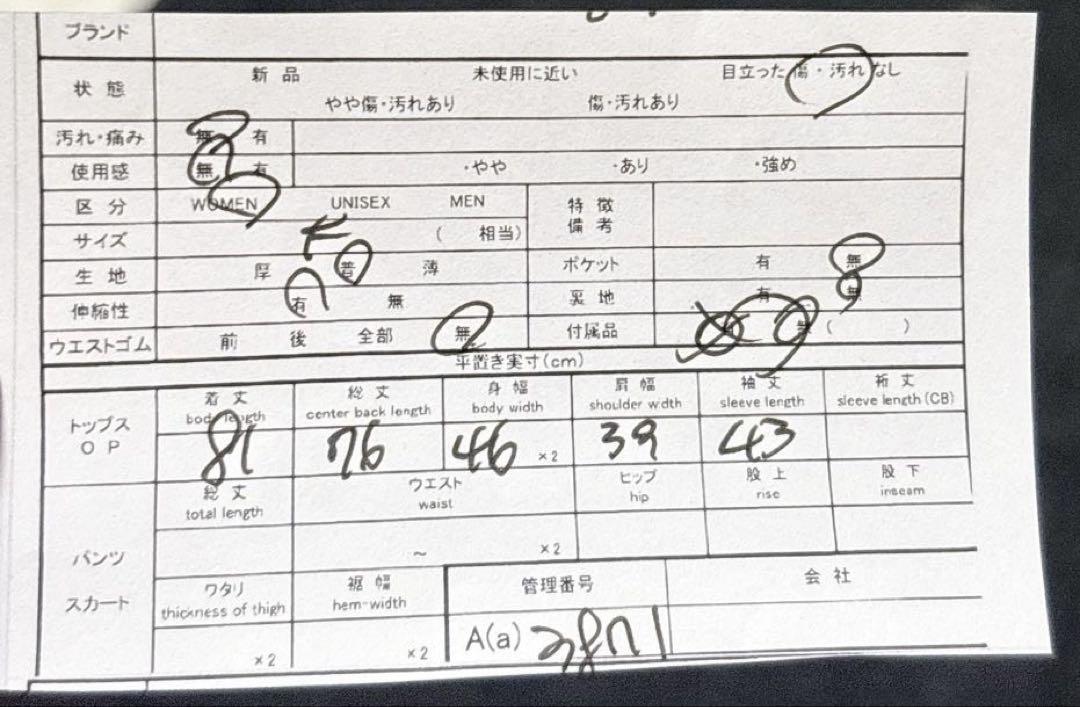 ブランド
状態 新品 未使用に近い 目立った傷・汚れなし
やや傷・汚れあり 傷・汚れあり
汚れ・痛み 無 有
使用感 無 有 ・やや ・あり ・強め
区分 WOMEN UNISEX MEN 特徴
備考
サイズ ( 相当)
生地 厚 普 薄 ポケット 有 無
伸縮性 有 無 裏地 有 無
ウエストゴム 前 後 全部 無 付属品 ( )
平置き実寸(cm)
トップス
OP
着丈 総丈 身幅 肩幅 袖丈 裄丈
body length center back length body width shoulder width sleeve length sleeve length (CB)
81 76 46 ×2 39 43
パンツ
スカート
総丈 ウエスト ヒップ 股上 股下
total length waist hip rise inseam
~ ×2
ワタリ 裾幅 管理番号 会社
thickness of thigh hem-width
×2 ×2 A(a)